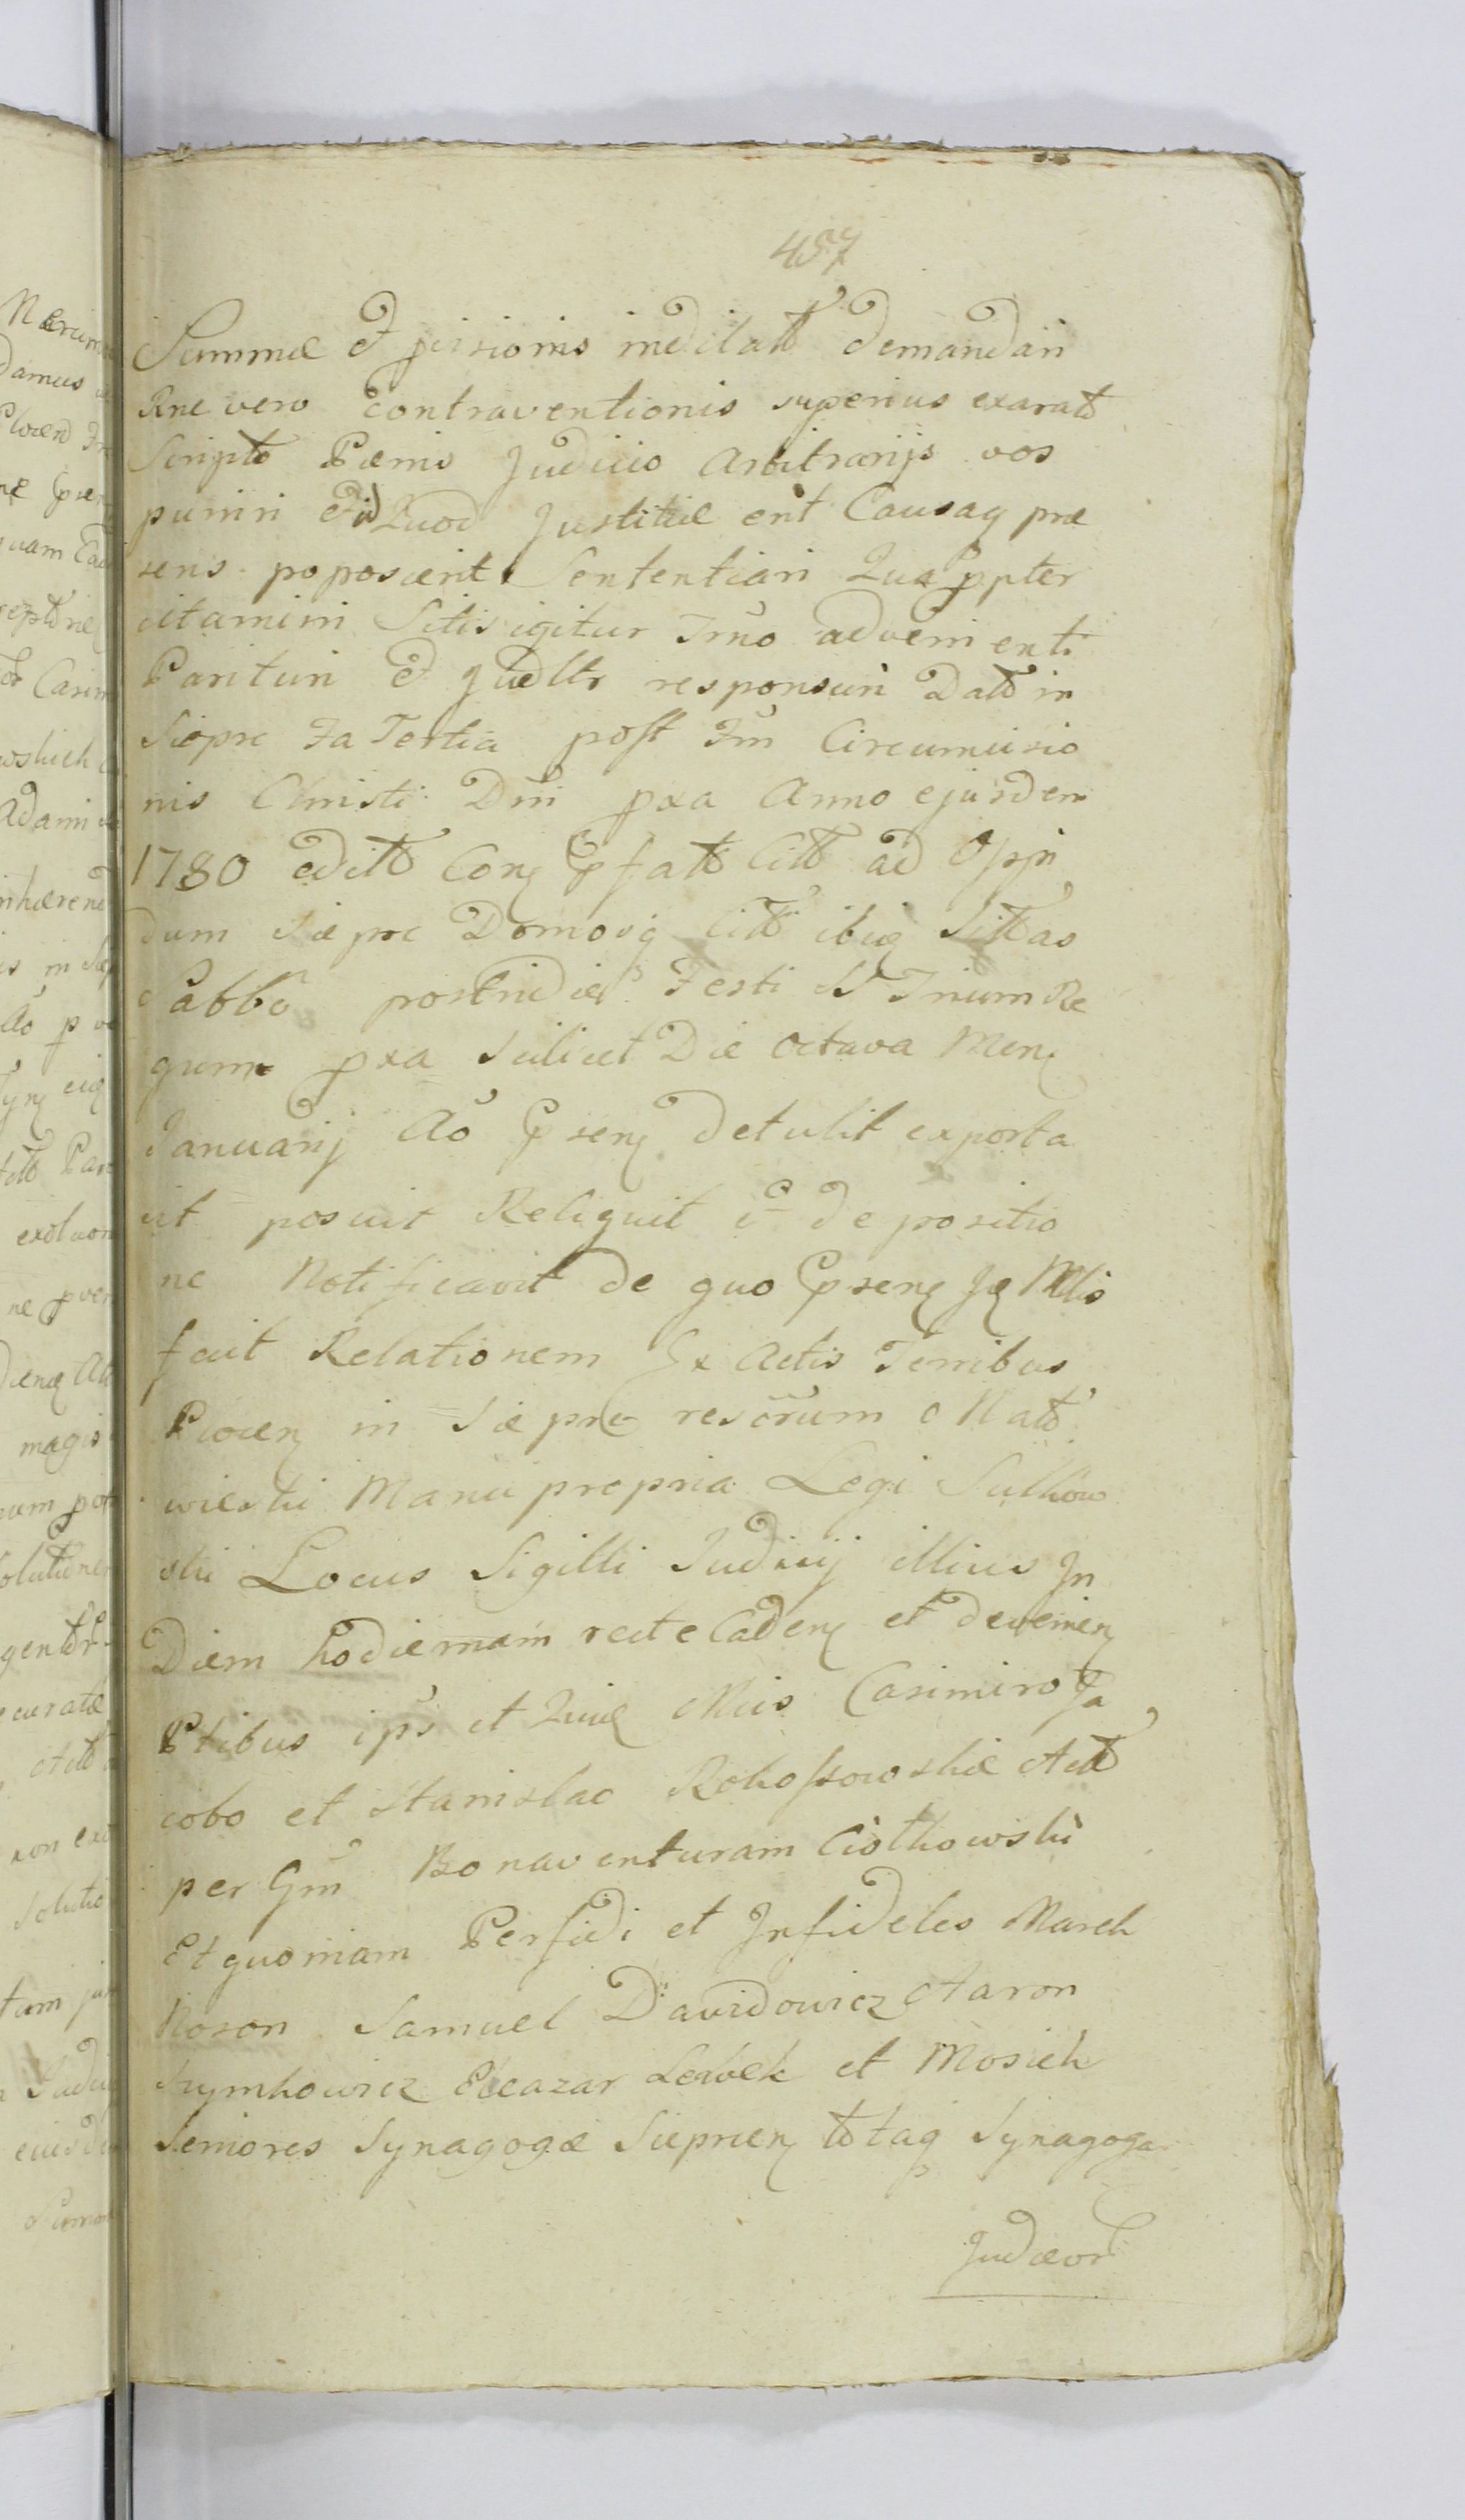 457
Summæ et pvisionis meditatt demandari
Rne vero contraventionis superius exaratt
Script Pænis Judicio Arbitrarijs vos
puniri Quod Justitiæ erit Causaq præ
sens poposcerit Sententiari Qua ppter
citamini Sitis igitur Trmo advenienti
Parituri et Judltr responsuri Datt in
Siepre Fa Tertia post Fm Circumcisio
nis Christi Dni pxa Anno ejusdem
1780 edit Conq pfatt Citt ad Oppi
dum Siepre Domosq Citt ibiq Sittas
Sabbo postridie Festi SS Trium Re
gum pxa Scilicet Die Octava Mens
Januarij Ao Psens detulit exporta
vit posuit Reliquit et de positio
ne Notificavit de quo psens Jq Mtlis
fecit Relationem Ex Actis Terribus
Plocens in Siepre rescrium O Natt
wieski Manu propria Legi Sulkow
ski Locus Sigilli Judicij illius In
Diem hodiernam recte Cadens et deveniens
Ptibus ips et Quie Mcis Casimiro Ja
cobo et Stanislao Rokossowskie Actt
per Gm Bonaventuram Ciotkowski
Et quoniam Perfidi et Infideles Marek
Noson Samuel Davidowicz Aaron
Szymkowicz Eleazar Lewek et Mosiek
Seniores Synagogæ Sieprcens totaq Synagoga
Judæor